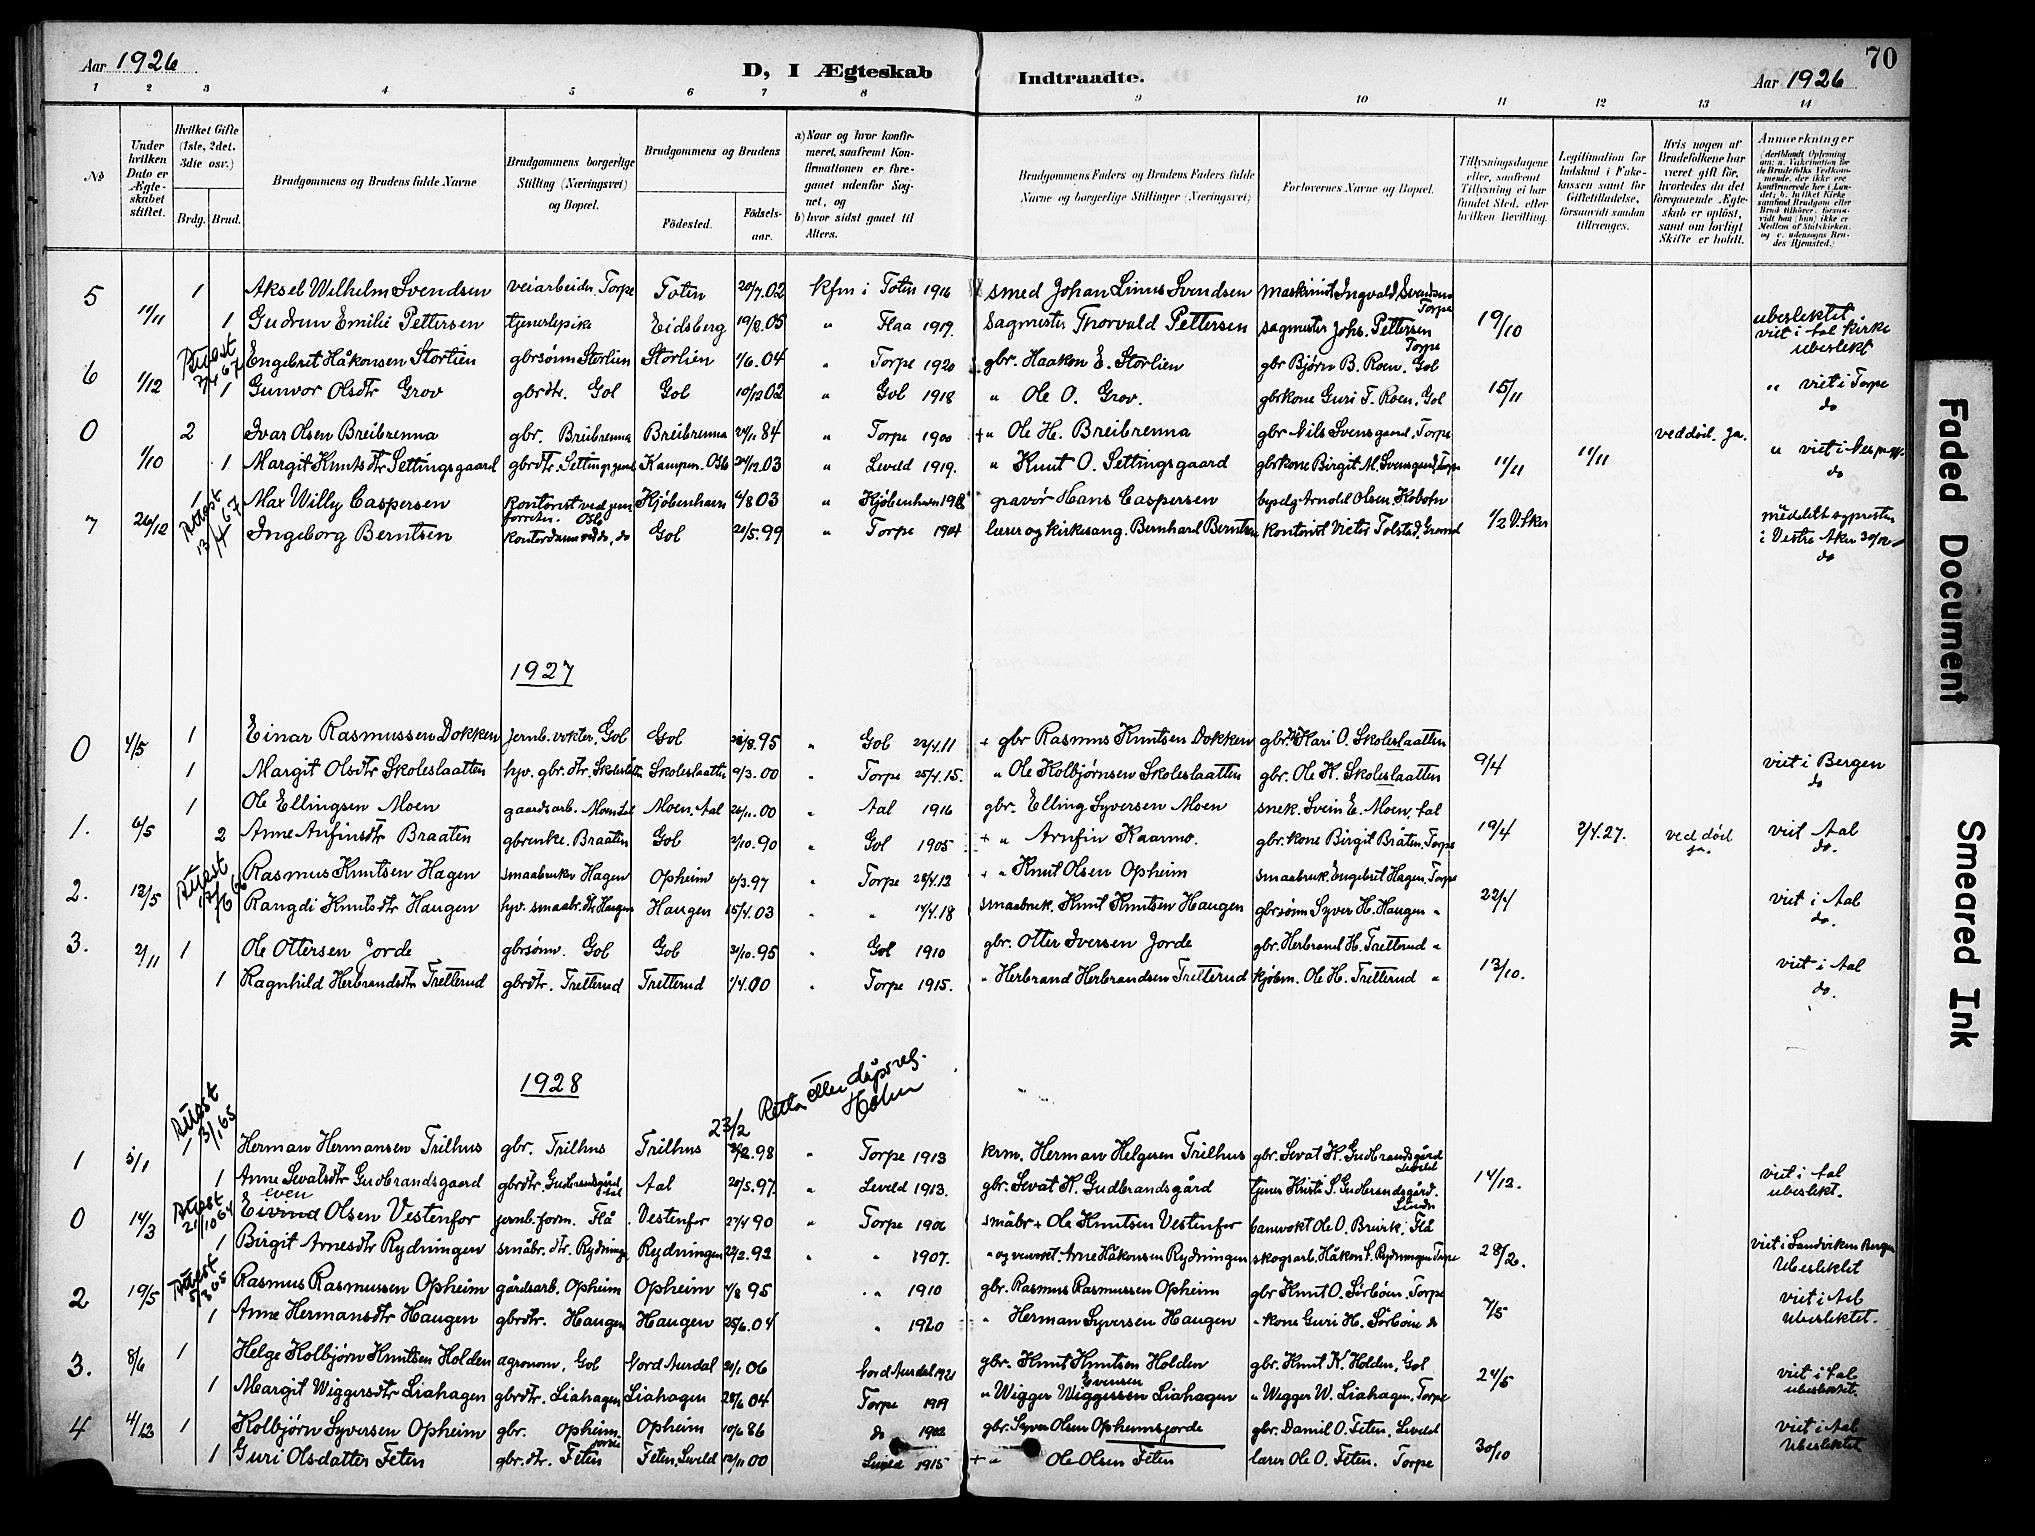 70
Aar 1926
D, I Ægteskab Indtraadte.
Aar 1926
1 2 3 4 5 6 7 8 9 10 11 12 13 14
No
Under hvilken Dato er Ægteskabet stiftet.
Hvilket Gifte (1ste, 2det, 3die osv.)
Brdg. Brud.
Brudgommens og Brudens fulde Navne
Brudgommens borgerlige Stilling (Næringsvei) og Bopæl.
Brudgommens og Brudens
Födested. Födselsaar.
a) Naar og hvor konfirmeret, saafremt Konfirmationen er foregaaet udenfor Sognet, og
b) hvor sidst gaaet til Alters.
Brudgommens Faders og Brudens Faders fulde Navne og borgerlige Stillinger (Næringsvei)
Forlovernes Navne og Bopæl.
Tillysningsdagene eller, saafremt Tillysning ei har fundet Sted, efter hvilken Bevilling.
Legitimation for Indskud i Enkekassen samt for Giftetilladelse, forsaavidt saadan tiltrænges.
Hvis nogen af Brudefolkene har været gift før, hvorledes da det foregaaende Ægteskab er oplöst, samt om lovligt Skifte er holdt.
Anmerkninger
5 11/11 1 Aksel Wilhelm Svendsen veiarbeider. Torpe Toten 20/7.02 kfm i Toten 1916 smed Johan Linus Svendsen maskinist Ingvald Svendsen Torpe
1 Gudrun Emilie Pettersen tjenestepike Eidsberg 19/2.05 " Flaa 1919. Sagmester Thorvald Pettersen sagmester Johs. Pettersen Torpe 19/10 ubeslektet. viet i Aal kirke
6 1/12 Attest 7/4 67 Engebret Håkonsen Storlien gbrsønn Storlien Storlien 1/6.04 " Torpe 1920 gbr. Haakon E. Storlien gbr Bjørn B. Roen. Gol ubeslekt
1 Gunvor Olsdtr Grov gbrdtr. Gol Gol 10/12 02 " Gol 1918 " Ole O. Grov. gbrkone Guri T. Roen. Gol 15/11 " viet i Torpe do
0 1/10 2 Ivar Olsen Breibrenna gbr. Breibrenna Breibrenna 24/11 84 " Torpe 1900 + " Ole H. Breibrenna gbr Nils Svensgaard, Torpe ved død. Ja.
1 Margit Knutsdtr Settingsgaard gbrdtr. Settingsgaard Kampen. Oslo 24/12.03 " Leveld 1919. " Knut O. Settingsgaard gbrkone Birgit M Svensgaard, Torpe 11/11 11/11 " viet i Nes do
7 26/12 1 Attest 13/4 67 Max Willy Caspersen Kontorist ved jern forretn. Oslo Kjøbenhavn 4/8 03 " Kjøbenhavn gravør Hans Caspersen Arnold Olsen. Kobotn
Ingeborg Berntsen Kontordame do, do Gol 21/5.99 " Torpe 1904 lærer og kirkesang. Bernhard Berntsen kontorist Victor Tolstad, Grorud 1/2 V. Aker meddelt sogneprsten i Vestre Aker 30/12 do
1927
0 4/5 1 Einar Rasmussen Dokken jernb. vokter. Gol Gol 26/8.95 " Gol 22/4.11 + gbr Rasmus Knutsen Dokken gbr Kari O. Skoleslaatten
1 Margit Olsdtr Skoleslaatten hjv. gbr. dtr. Skoleslaatten Skoleslaatten 9/3.00 " Torpe 25/4.15. " Ole Kolbjørnsen Skoleslaatten gbr. Ole K. Skoleslaatten 9/4 viet i Bergen do
1. 6/5 1 Ole Ellingsen Moen gaardsarb. Moen Moen. Aal 26/11.00 " Aal 1916 gbr. Elling Syversen Moen snek. Svein E. Moen. Aal
2 Anne Anfinsdtr Braaten gbrenke. Braaten Gol 2/10.90 " Gol 1905 + " Arnfin Kaarmo. gbr. kone Birgit Bråten. Torpe 19/4 2/4.27. ved død ja. viet Aal do.
2. 12/5 Attest Rasmus Knutsen Hagen smaabruker Hagen Opheim 6/3.97 " Torpe 28/4.12 + " Knut Olsen Opheim smaabruk. Engebret Hagen, Torpe
Rangdi Knutsdtr Haugen hjv. smaabr. dtr Haugen Haugen 15/4.03 " " 14/4.18 smaabruk. Knut Knutsen Haugen gbrsønn Syver H. Haugen " 22/4 viet i Aal do.
3. 2/11 1 Ole Ottersen Jorde gbrsønn. Gol Gol 31/10.95 " Gol 1910 gbr. Otter Iversen Jorde gbr. Herbrand H. Tretterud "
1 Ragnhild Herbrandsdtr Tretterud gbrdtr. Tretterud Tretterud 1/4.00 " Torpe 1915. " Herbrand Herbrandsen Tretterud kjøbm. Ole H. Tretterud " 13/10. viet i Aal do.
1928
23/2 Retta etter dåpsreg. Holm
1 5/1 Attest 13/1 65 1 Herman Hermansen Trilhus gbr. Trilhus Trilhus 2.98 " Torpe 1913 krm. Herman Helgesen Trilhus gbr. Sevat K. Gudbrandsgård Leveld
1 Anne Sevatsdtr Gudbrandsgaard gbrdtr. Gudbrandsgård Aal Aal 20/5.97. " Leveld 1913. gbr. Sevat K. Gudbrandsgård tjener Kristi S. Gudbrandsgård. 14/12. viet i Aal ubeslekt.
0 14/3 Attest 21/10 64 Eivind even Olsen Vestenfor jernb. form. Flå Vestenfor 27/4 90 " Torpe 1906 småbr + Ole Knutsen Vestenfor banevokt Ole O. Brevik, Flå
1 Birgit Arnesdtr Rydningen småbr. dtr. Rydningen Rydningen 22/2.92 " " 1907. " og veivokt. Arne Håkonsen Rydningen skogsarb. Håkon S. Rydningen Torpe 28/2. viet i Sandviken Bergen Ubeslektet
2 19/5 Attest Rasmus Rasmussen Opheim gårdsarb. Opheim Opheim 4/8 95 " " 1910 gbr. Rasmus Rasmussen Opheim gbr Knut O. Sörbøen. Torpe
1 Anne Hermansdtr Haugen gbrdtr. Haugen Haugen 25/6.04 " 1920 " Herman Syversen Haugen " kone Guri H. Sörbøen do 7/5 viet i Aal Ubeslektet.
3. 8/6 1 Helge Kolbjørn Knutsen Holden agronom, Gol Nord Aurdal 20/1 06 Nord Aurdal 1921 gbr. Knut Knutsen Holden gbr. Knut K. Holden, Gol
1 Margit Wiggersdtr Liahagen gbrdtr. Liahagen Liahagen 28/6 04 Torpe 1919 " Wigger Wiggersen Evensen Liahagen " Wigger W. Liahagen. Torpe 24/5 viet i Aal ubeslektet.
4 4/12 1 Kolbjørn Syversen Opheim gbr. Opheimjorde Opheim 10/6 86 do 1902 gbr. Syver Olsen Opheimsjorde gbr. Daniel O. Feten. Leveld
1 Guri Olsdatter Feten gbr. dtr. Feten Feten, Leveld 12/11 00 Leveld 1915 + " Ole Olsen Feten lærer Ole O. Feten. Torpe 30/10 viet i Aal Ubeslektet
Faded Document
Smeared Ink